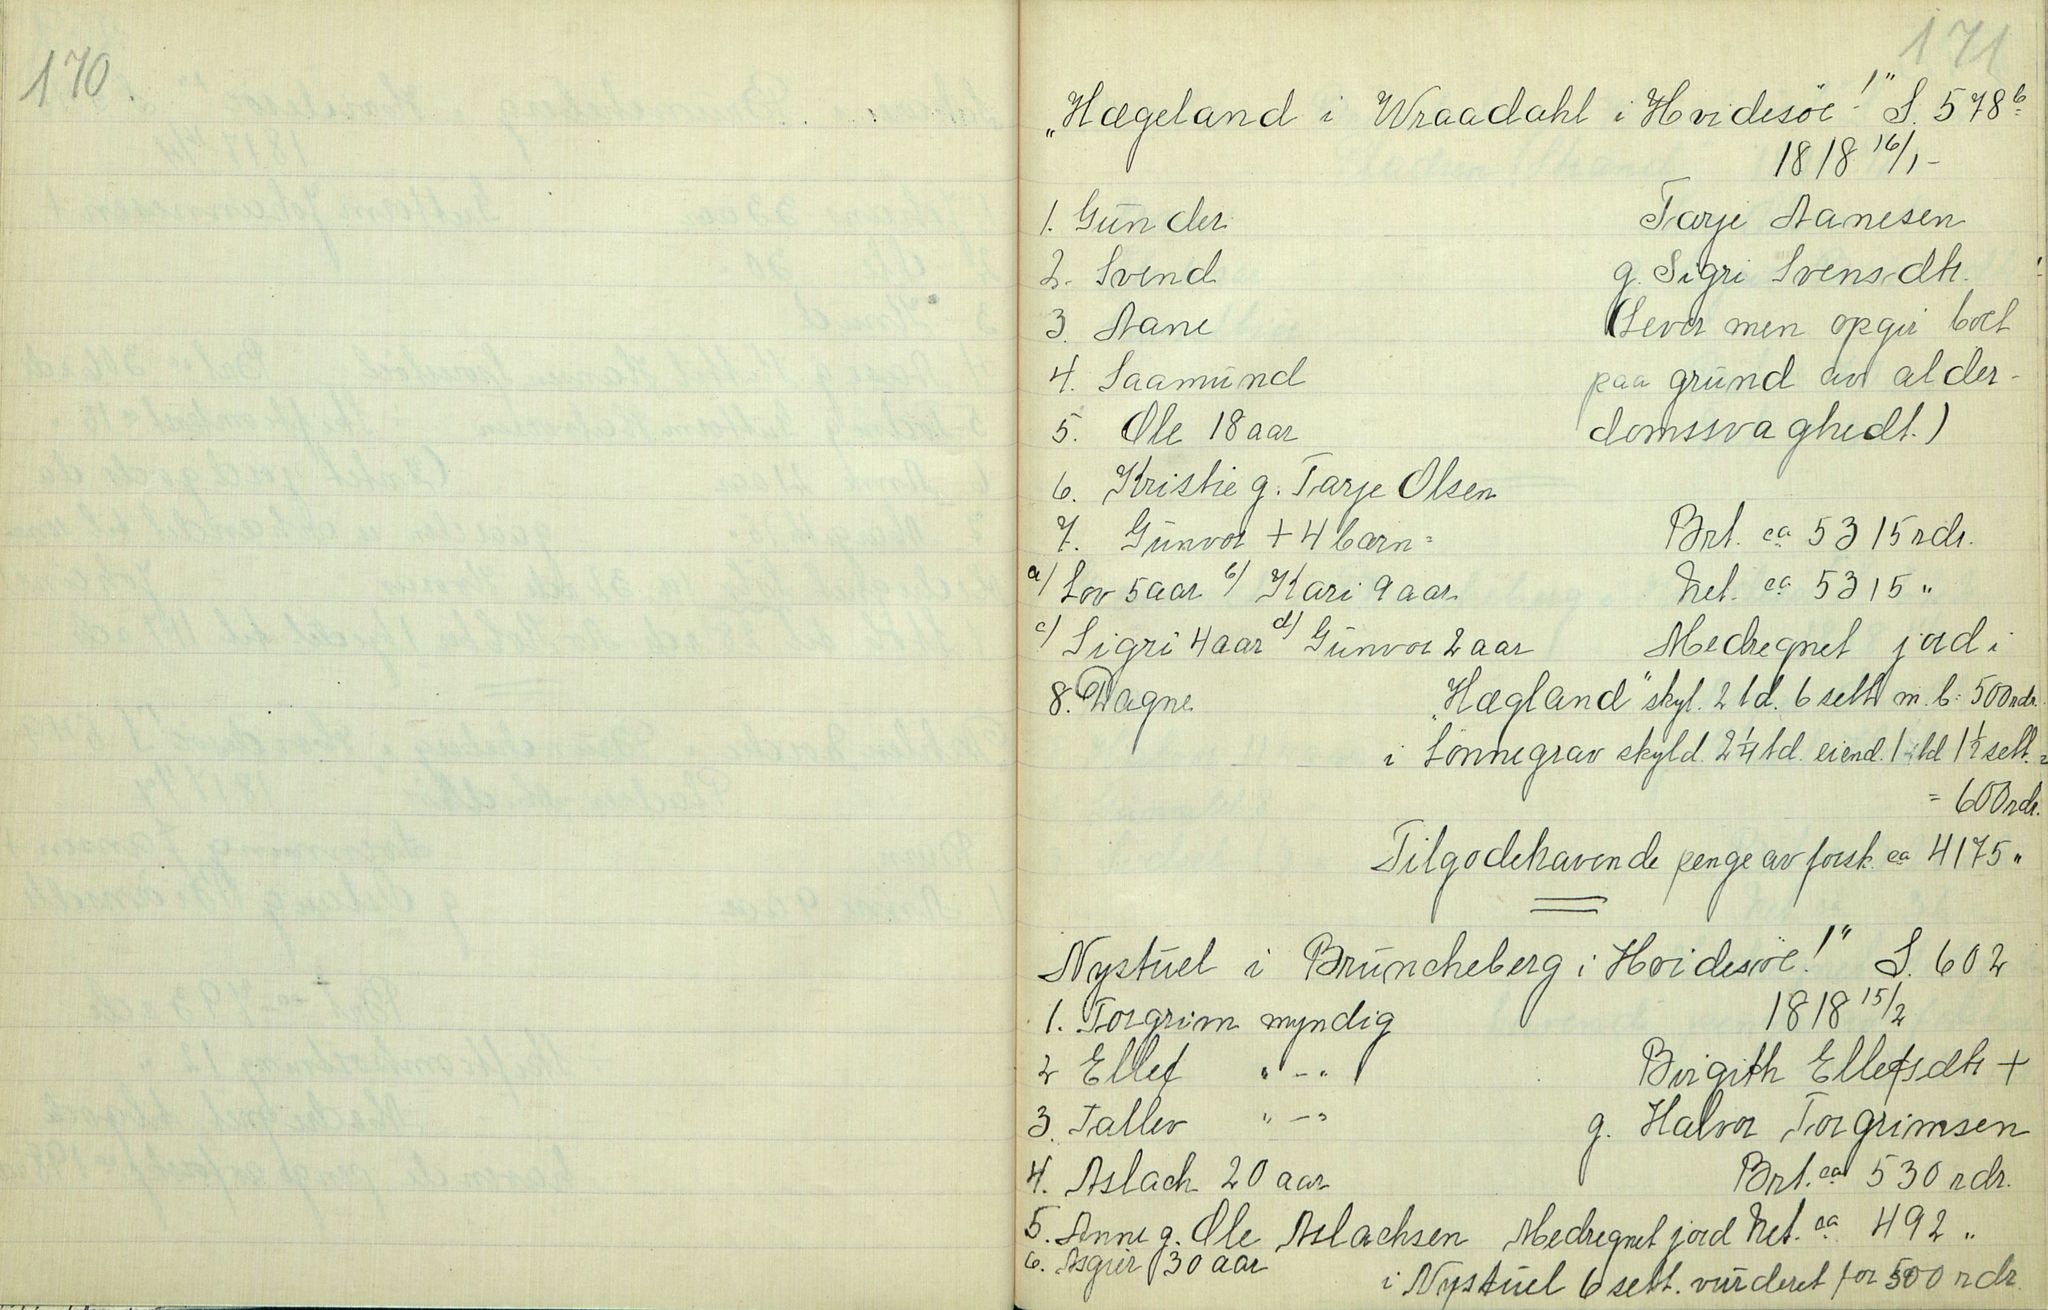 170
171
„Hægeland i Wraadahl i Hvidesöe!" S. 578 b
1818 16/1 -
1. Gunder Tarje Aanesen
2. Svend g. Sigri Svensdtr.
3. Aane (Lever men opgir boet
4. Saamund paa grund av alder-
5. Ole 18 aar domssvaghedt.)
6. Kristie g. Tarje Olsen
7. Gunvor + 4 barn = Brt. ca 5315 rdr.
a/ Lov 5 aar b/ Kari 9 aar Net. ca 5315 "
c/ Sigri 4 aar d/ Gunvor 2 aar Medregnet jord i
8. Dagne „Hægland" skyl. 2 td. 6 sett m. b. 500 rdr.
i Lönnegrav skyld. 2 1/4 td. eiend. 1 td 1 1/2 sett. =
= 600 rdr.
Tilgodehavende penge av forsk. ca 4175 "
Nystuel i Bruncheberg i Hvidesöe!" S. 602
1. Torgrim myndig 1818 15/2
2 Ellef " - " Birgith Ellefsdtr +
3. Tallev " - " g. Halvor Torgrimsen
4. Aslach 20 aar Brt. ca 530 rdr.
5. Anne g. Ole Aslachsen Medregnet jord Net. ca 492 "
6. Asgier 30 aar i Nystuel 6 sett. vurderet for 500 rdr.